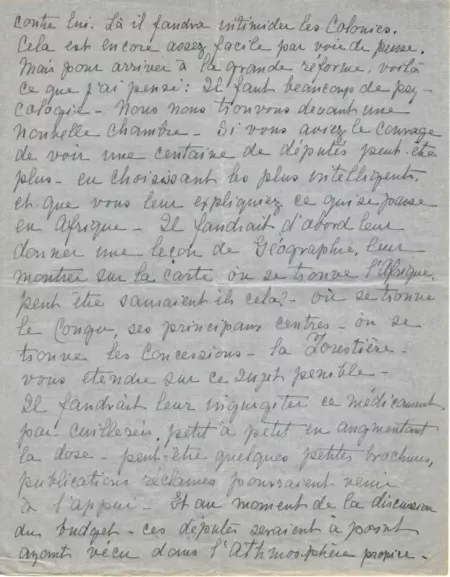 contre lui. Là il faudra intimider les Colonies.
Cela est encore assez facile par voie de presse.
Mais pour arriver à la grande réforme, voilà
ce que j'ai pensé: Il faut beaucoup de psy-
cologie - Nous nous trouvons devant une
nouvelle chambre - Si vous aviez le courage
de voir une centaine de députés peut-être
plus - en choisissant les plus intelligents,
et que vous leur expliquiez ce qui se passe
en Afrique - Il faudrait d'abord leur
donner une leçon de Géographie, leur
montrer sur la carte, où se trouve l'Afrique,
peut être sauraient ils cela? - où se trouve
le Congo, ses principaux centres - où se
trouve les Concessions - la Forestière -
vous étendre sur ce sujet penible -
Il faudrait leur ingurgiter ce médicament
par cuillerées, petit à petit en augmentant
la dose - peut-être quelques petites brochures,
publications réclames pourraient venir
à l'appui - Et au moment de la discussion
du budget - ces députés seraient à point
ayants vécu dans l'Athmosphère propice -